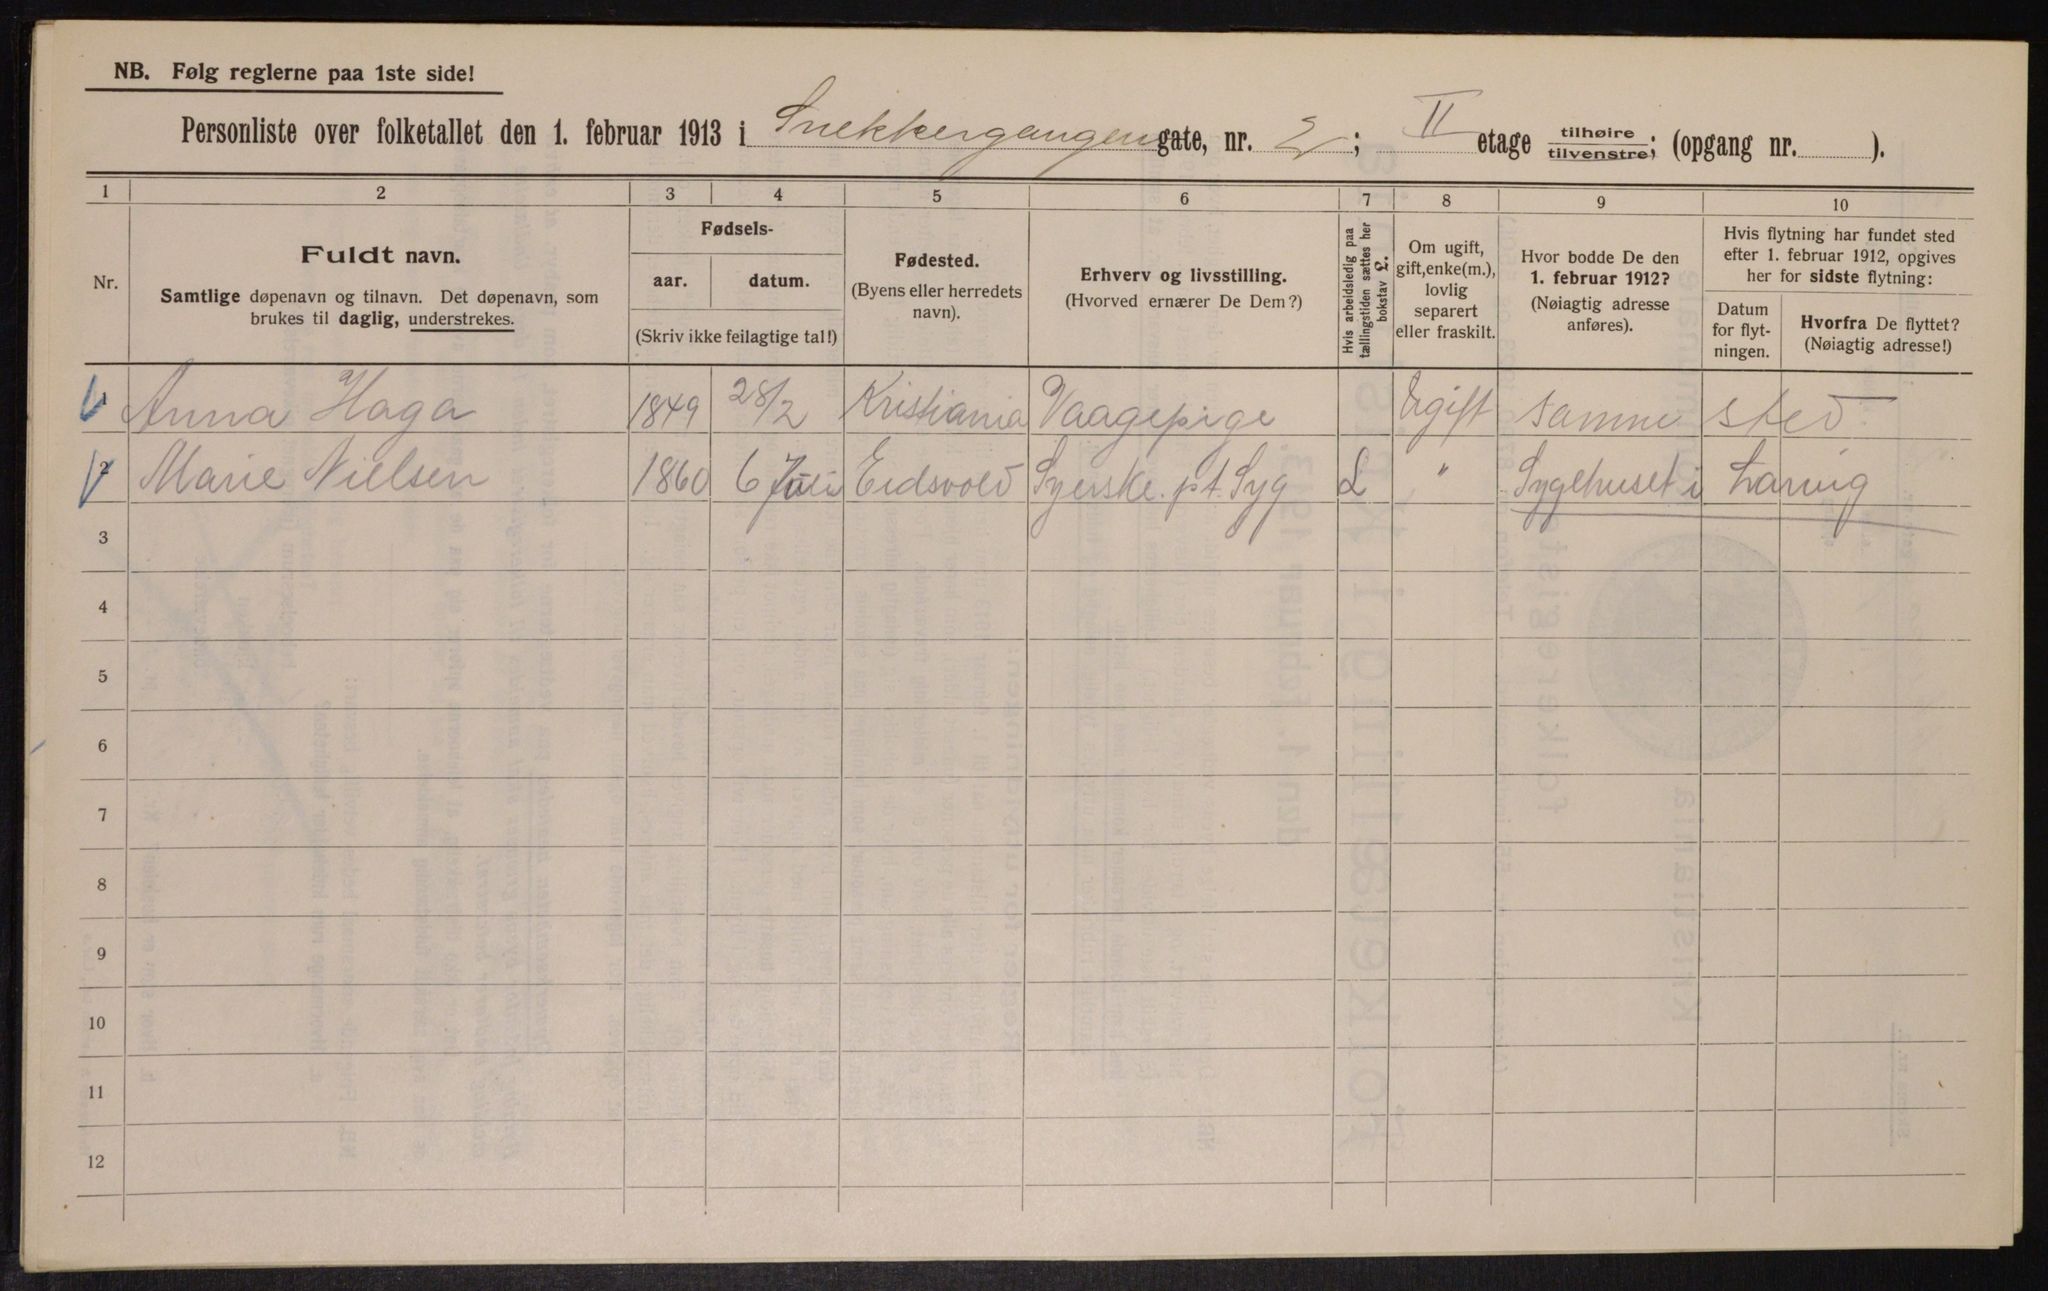 NB. Følg reglerne paa 1ste side!
Personliste over folketallet den 1. februar 1913 i Snekkergangen gate, nr. 2; II etage tilhøire / tilvenstre; (opgang nr. ).
1 2 3 4 5 6 7 8 9 10
Nr.
Fuldt navn.
Samtlige døpenavn og tilnavn. Det døpenavn, som
brukes til daglig, understrekes.
Fødsels-
aar. datum.
(Skriv ikke feilagtige tal!)
Fødested.
(Byens eller herredets
navn).
Erhverv og livsstilling.
(Hvorved ernærer De Dem?)
Hvis arbeidsledig paa
tællingstiden sættes her
bokstav £.
Om ugift,
gift, enke(m.),
lovlig
separert
eller fraskilt.
Hvor bodde De den
1. februar 1912?
(Nøiagtig adresse
anføres).
Hvis flytning har fundet sted
efter 1. februar 1912, opgives
her for sidste flytning:
Datum
for flyt-
ningen.
Hvorfra De flyttet?
(Nøiagtig adresse!)
1 Anna Haga 1849 28/2 Kristiania Vaagepige Ugift samme sted
2 Marie Nielsen 1860 6 Eidsvold Syerske pt. Syg £ " Sygehuset i Larvig
3
4
5
6
7
8
9
10
11
12